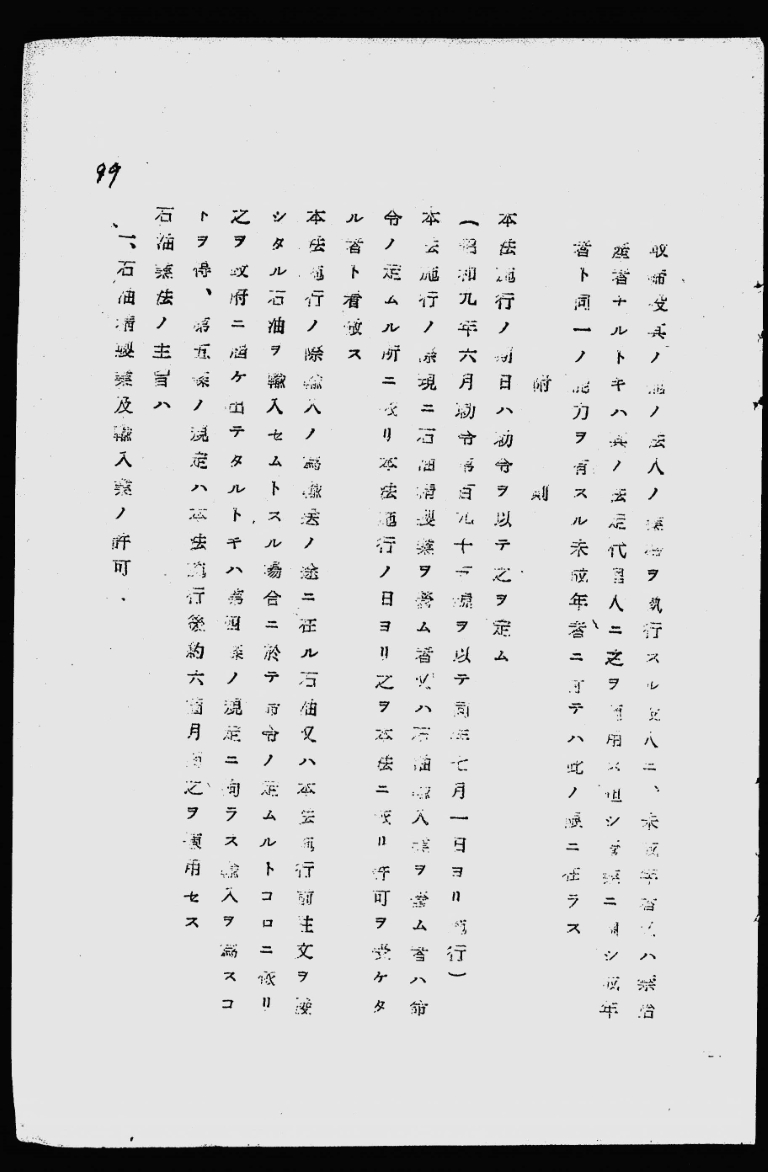 取締役其ノ他ノ法人ノ業務ヲ執行スル役人ニ、未成年者又ハ禁治
産者ナルトキハ其ノ法定代理人ニ之ヲ適用ス但シ営業ニ関シ成年
者ト同一ノ能力ヲ有スル未成年者ニ付テハ此ノ限ニ在ラス
附則
本法施行ノ期日ハ勅令ヲ以テ之ヲ定ム
(昭和九年六月勅令第百九十五號ヲ以テ同年七月一日ヨリ施行)
本法施行ノ際現ニ石油精製業ヲ營ム者又ハ石油輸入業ヲ營ム者ハ命
令ノ定ムル所ニ依リ本法施行ノ日ヨリ之ヲ本法ニ依リ許可ヲ受ケタ
ル者ト看做ス
本法施行ノ際輸入ノ為輸送ノ途ニ在ル石油又ハ本法施行前注文ヲ發
シタル石油ヲ輸入セムトスル場合ニ於テ命令ノ定ムルトコロニ依リ
之ヲ政府ニ届ケ出テタルトキハ第四條ノ規定ニ拘ラス輸入ヲ為スコ
トヲ得、第五條ノ規定ハ本法施行後約六箇月間之ヲ適用セス
石油業法ノ主旨ハ
一、石油精製業及輸入業ノ許可、
99